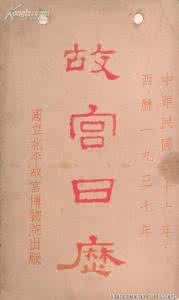 中華民國二十六年
西曆一九三七年
故宮日歷
國立北平故宮博物院出版